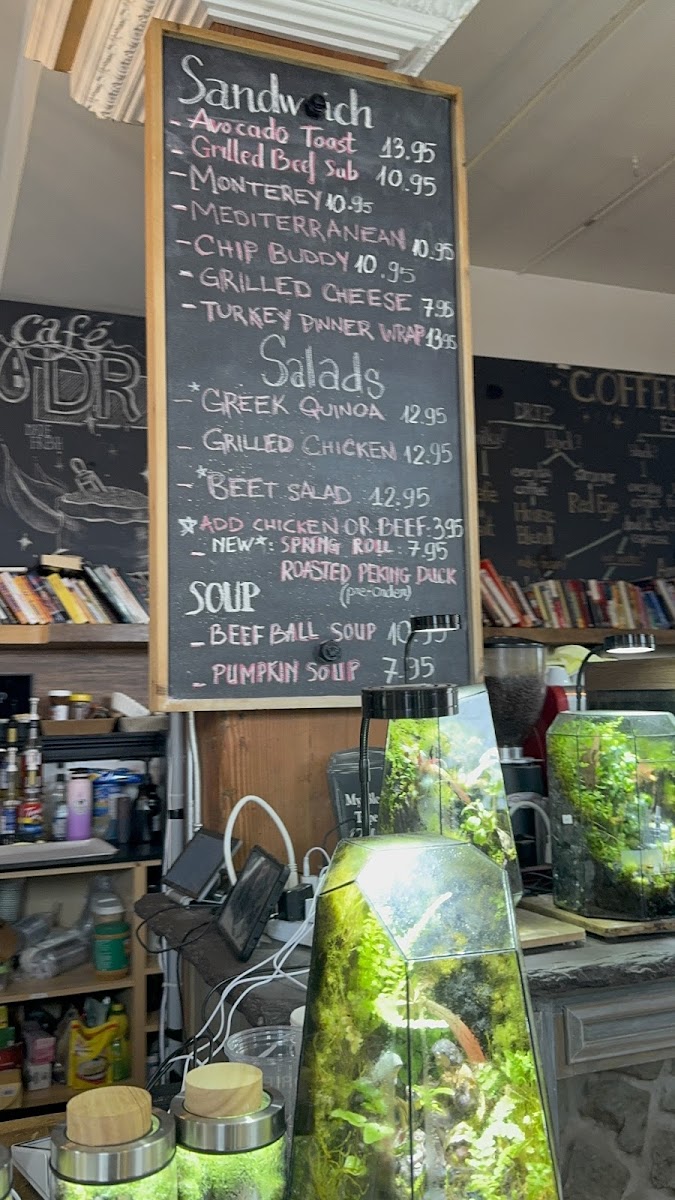 Sandwich
- Avocado Toast 13.95
- Grilled Beef Sub 10.95
- MONTEREY 10.95
- MEDITERRANEAN 10.95
- CHIP BUDDY 10.95
- GRILLED CHEESE 7.95
- TURKEY DINNER WRAP 13.95
Salads
- *GREEK QUINOA 12.95
- GRILLED CHICKEN 12.95
- *BEET SALAD 12.95
☆ ADD CHICKEN OR BEEF: 3.95
- NEW*: SPRING ROLL: 7.95
ROASTED PEKING DUCK
(pre-order)
SOUP
- BEEF BALL SOUP 10.95
- PUMPKIN SOUP 7.95
café
DR
COFFEE
DRIP
Red Eye
House
Blend